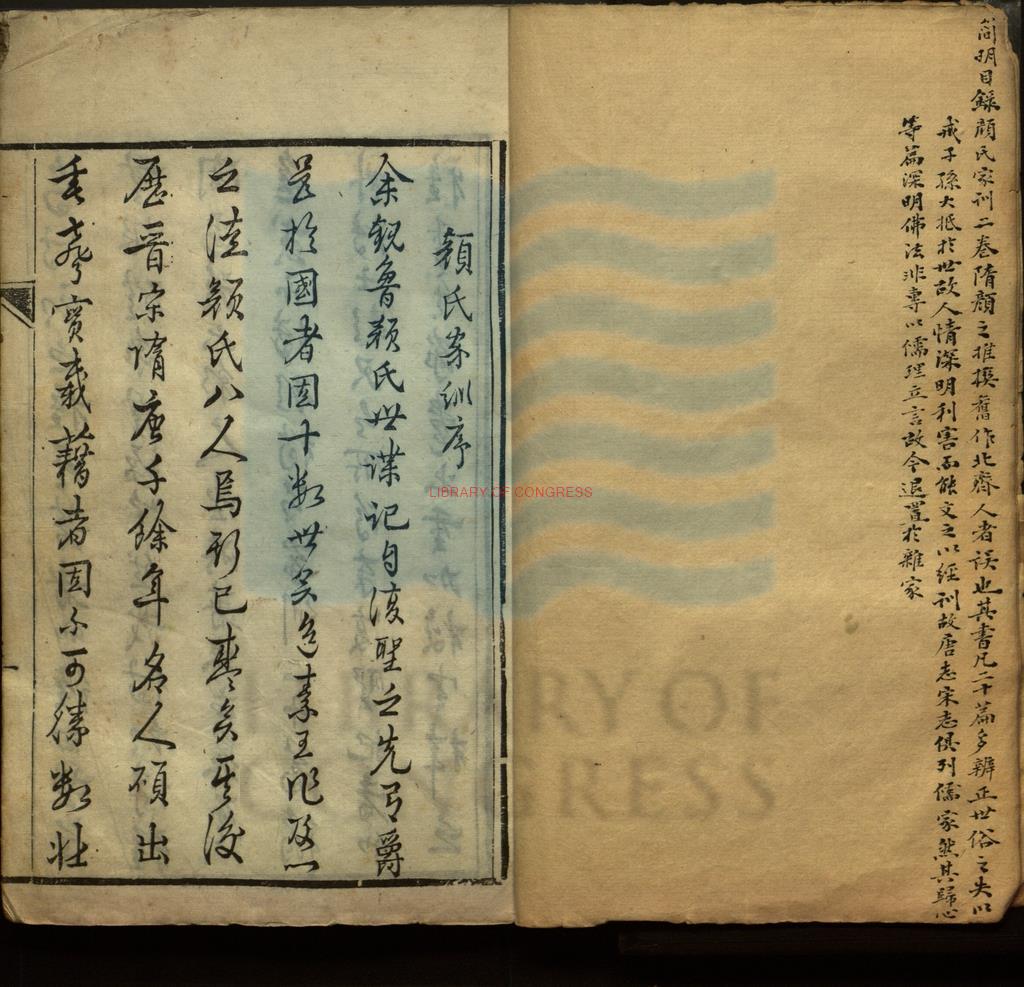 簡明目録顔氏家訓二巻隋顔之推撰舊作北齊人者误也其書凡二十篇多辨正世俗之失以
戒子孫大抵於世故人情深明利害而能文之以經訓故唐志宋志俱列儒家然其歸心
等篇深明佛法非專以儒理立言故今退置於雜家
顔氏家訓序
余觀魯顔氏世諜記自復聖之先有爵
邑於國者固十數世矣迨素王作及門
之徒顔氏八人焉斯已盛矣其後
歷晋宋隋唐千餘年名人碩出
垂聲實載藉者固不可勝數壮
LIBRARY OF CONGRESS